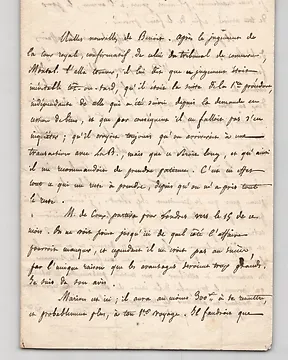 nulles nouvelles de Benoit. Après le jugement de
la cour royale, confirmatif de celui du tribunal de commerce,
l'alla trouver, il lui dit que ce jugement était
inévitable tôt ou tard, qu'il était la suite de la 1re procédure,
indépendante de celle qui a été suivie depuis la demande en
et que par conséquent il ne fallait pas s'en
inquiéter; qu'il croyait toujours qu'on arriverait à une
transaction avec la B., mais que ce serait long, et qu'ainsi
il me recommandait de prendre patience. C'est en effet
tout ce qui me reste à prendre, depuis qu'on m'a pris tout
le reste.
M. de Coux partira pour Londres vers le 15 de ce
mois. On ne voit point jusqu'ici de quel côté l'affaire
pourrait manquer, et cependant il ne croit pas au succès
par l'unique raison que les avantages seraient trop grands.
Je suis de son avis.
Marion est ici; il aura au moins 300 f. à te remettre
et probablement plus, à ton 1er voyage. Il faudra que